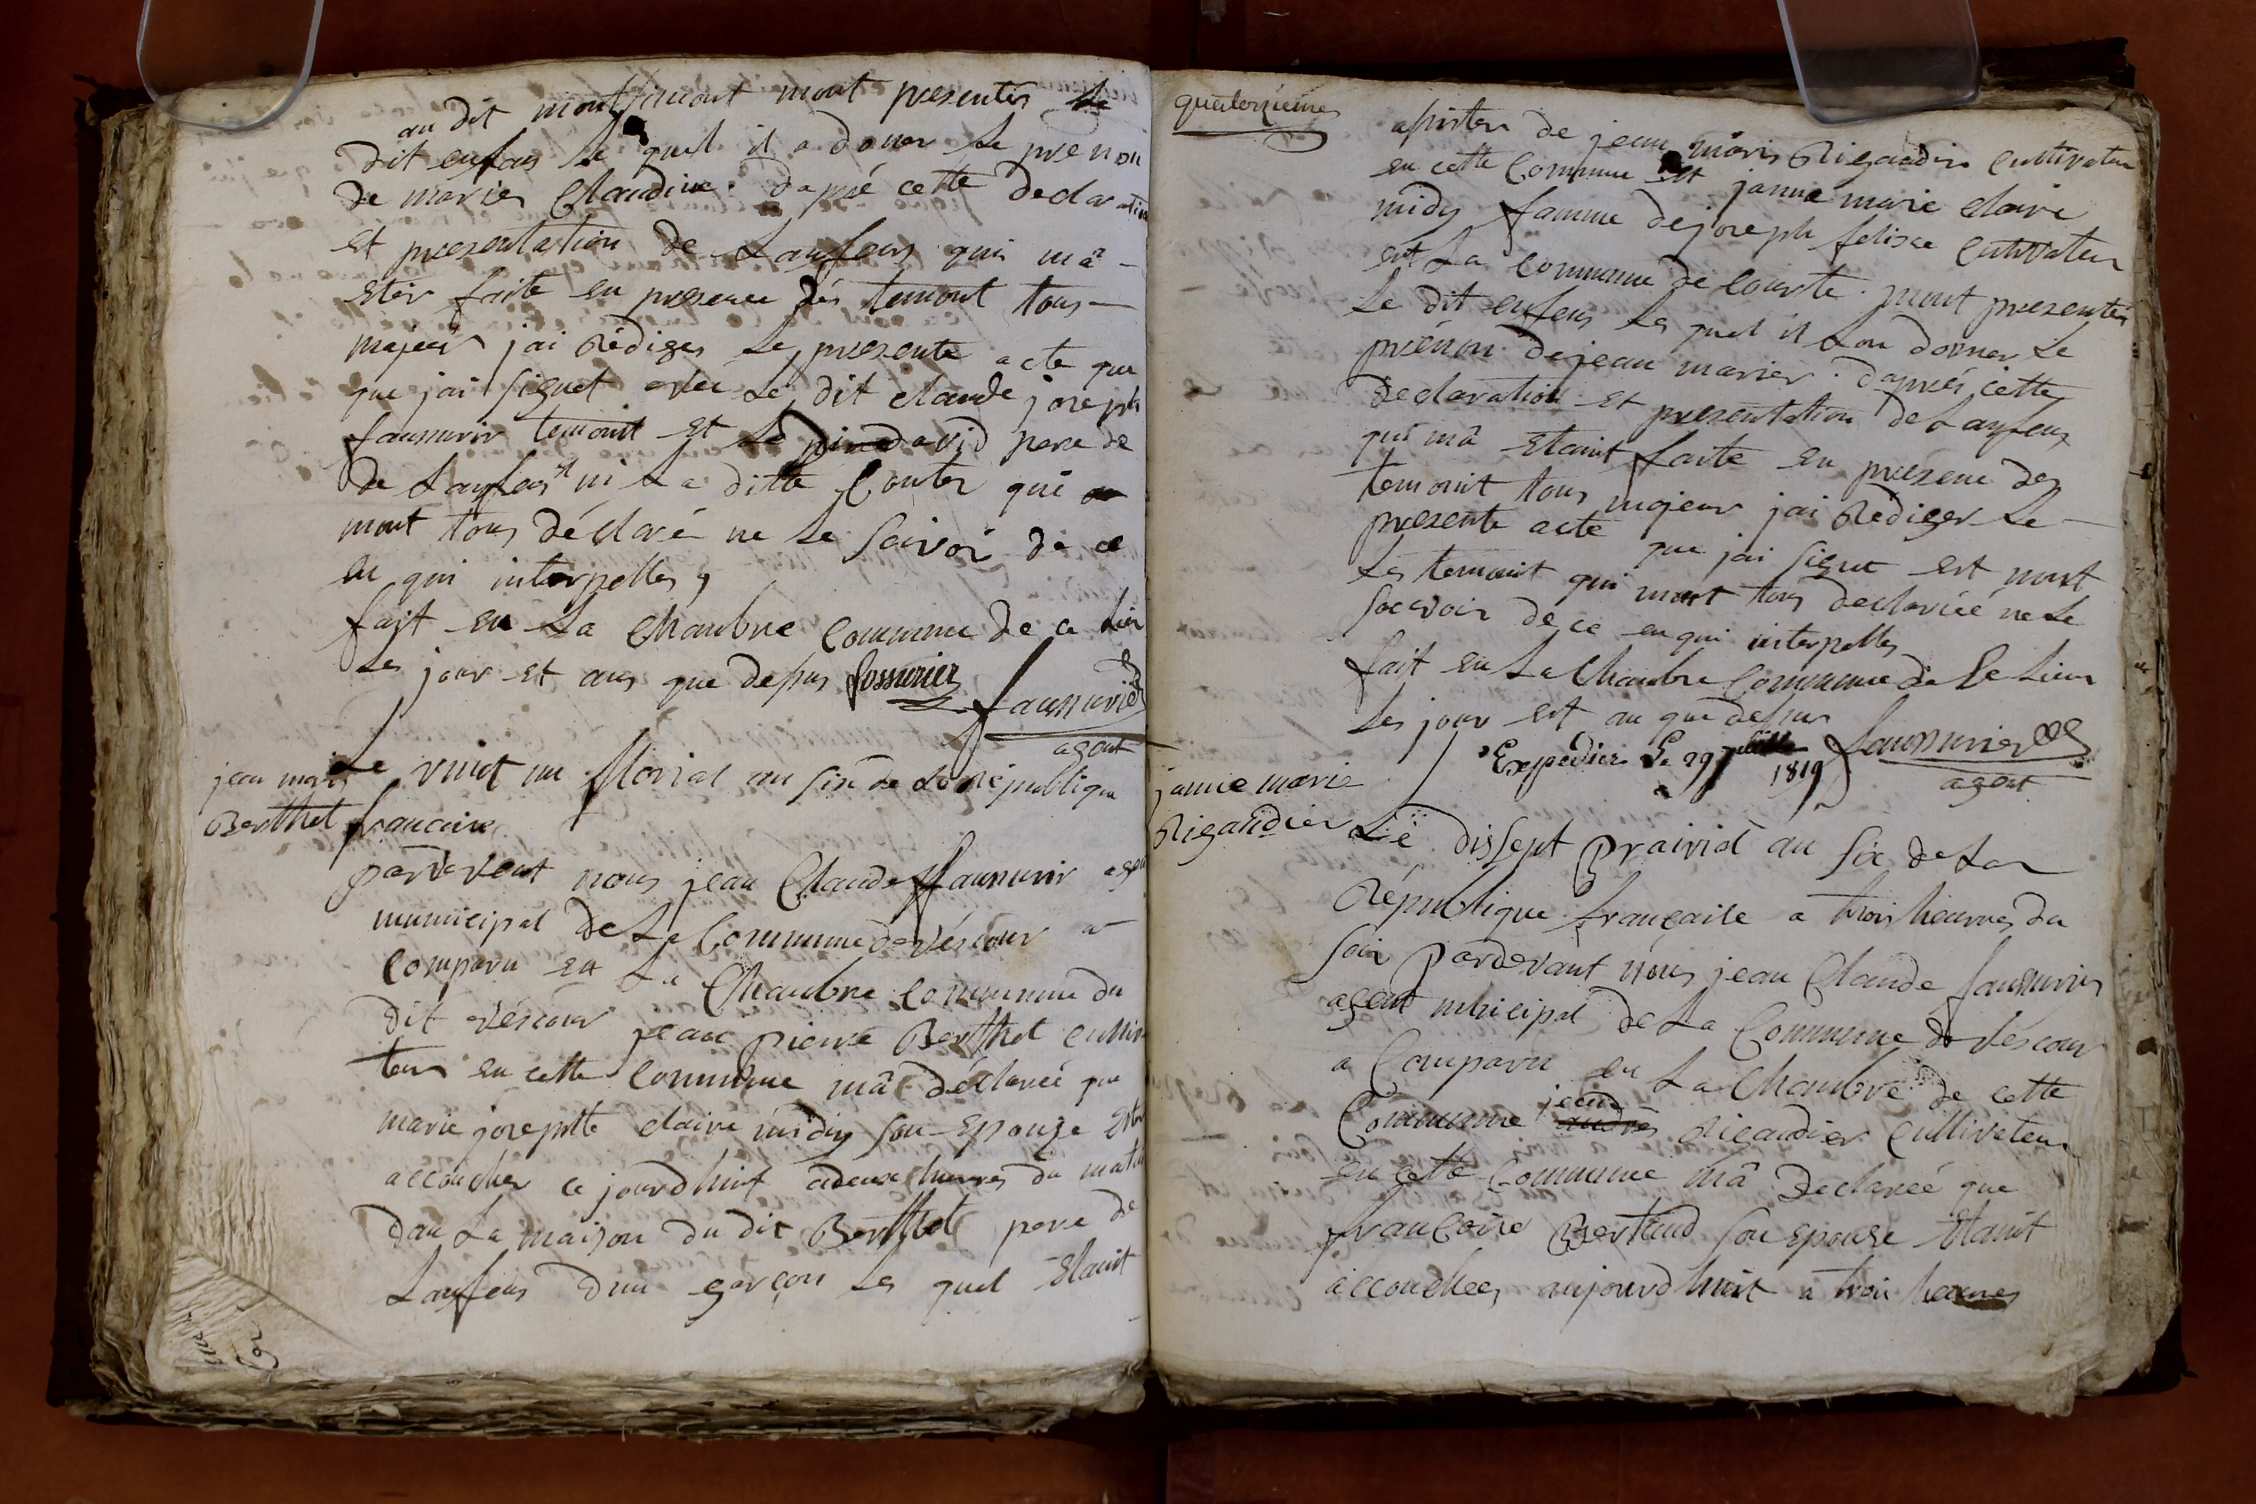 au dit montsimont mont presentér Le
dit enfans Le quel il a doner Le prenon
de marier Claudine. dapré cette declaration
et presentation de Lanfens qui mâ
eter faite en presence des temont tous
majeur jai rédiger Le presente acte que
que jai signet avec Le dit claude joseph
faussurir temoint et Le david pere de
de Lanfens ni La ditte Conter qui
mont tous déclaré ne Le savoir de ce
en qui interpelles,
fait en La Chambre Commune de ce Lieu
Les jour et ans que desus fossurier
faussurier
agent
jean marie
Berthet
Le vint un florial an sixe de La république
francaire
pardevent nous jean Claude faussurir agent
municipal de La Commune de véscour a
Comparu en La Chambre Commune du
dit véscour jean pierre Berthet cultiva
teur en cette Commune mâ déclareé que
marie josephte claire midy son Epouse
accoucher ce jourdhuit adeux heures du matin
dan La maison du dit Berthet pere de
Lanfens dun garçon Les quel Etanit
quatorzieme
asister de jean maris Rigaudir Cultivateur
en cette Commune et janne marie claire
midy famme de joseph felisce Cultivateur
ent La Commune de Courte. mont presenter
Le dit enfens Les quel il Lon donner Le
prénon de jean marier. daprés cette
declaration et presentation de Lanfens
qui mâ etanit faite en presence des
temoint tous majeur jai rediger Le
presente acte que jai signe est nont
Les temoint qui mont tous declareé ne Le
scavoir de ce en qui interpelles
fait en La Chambre Commune de Ce Lieu
Les jour est an que desus
Expedier Le 29 1819
faussurier
agent
janne marie
Rigaudier
Lé dissept Prairial an six de La
république française a trois heures du
soir Pardevant nous jean Claude faussuris
agent municipal de La Commune de véscour
a Comparu en La Chambre de cette
Commune jean Rigaudier Cultivateur
en cette Commune mâ declareé que
françoise Bertrud son epouse Etanit
accouchée, aujourdhuit a troi heures